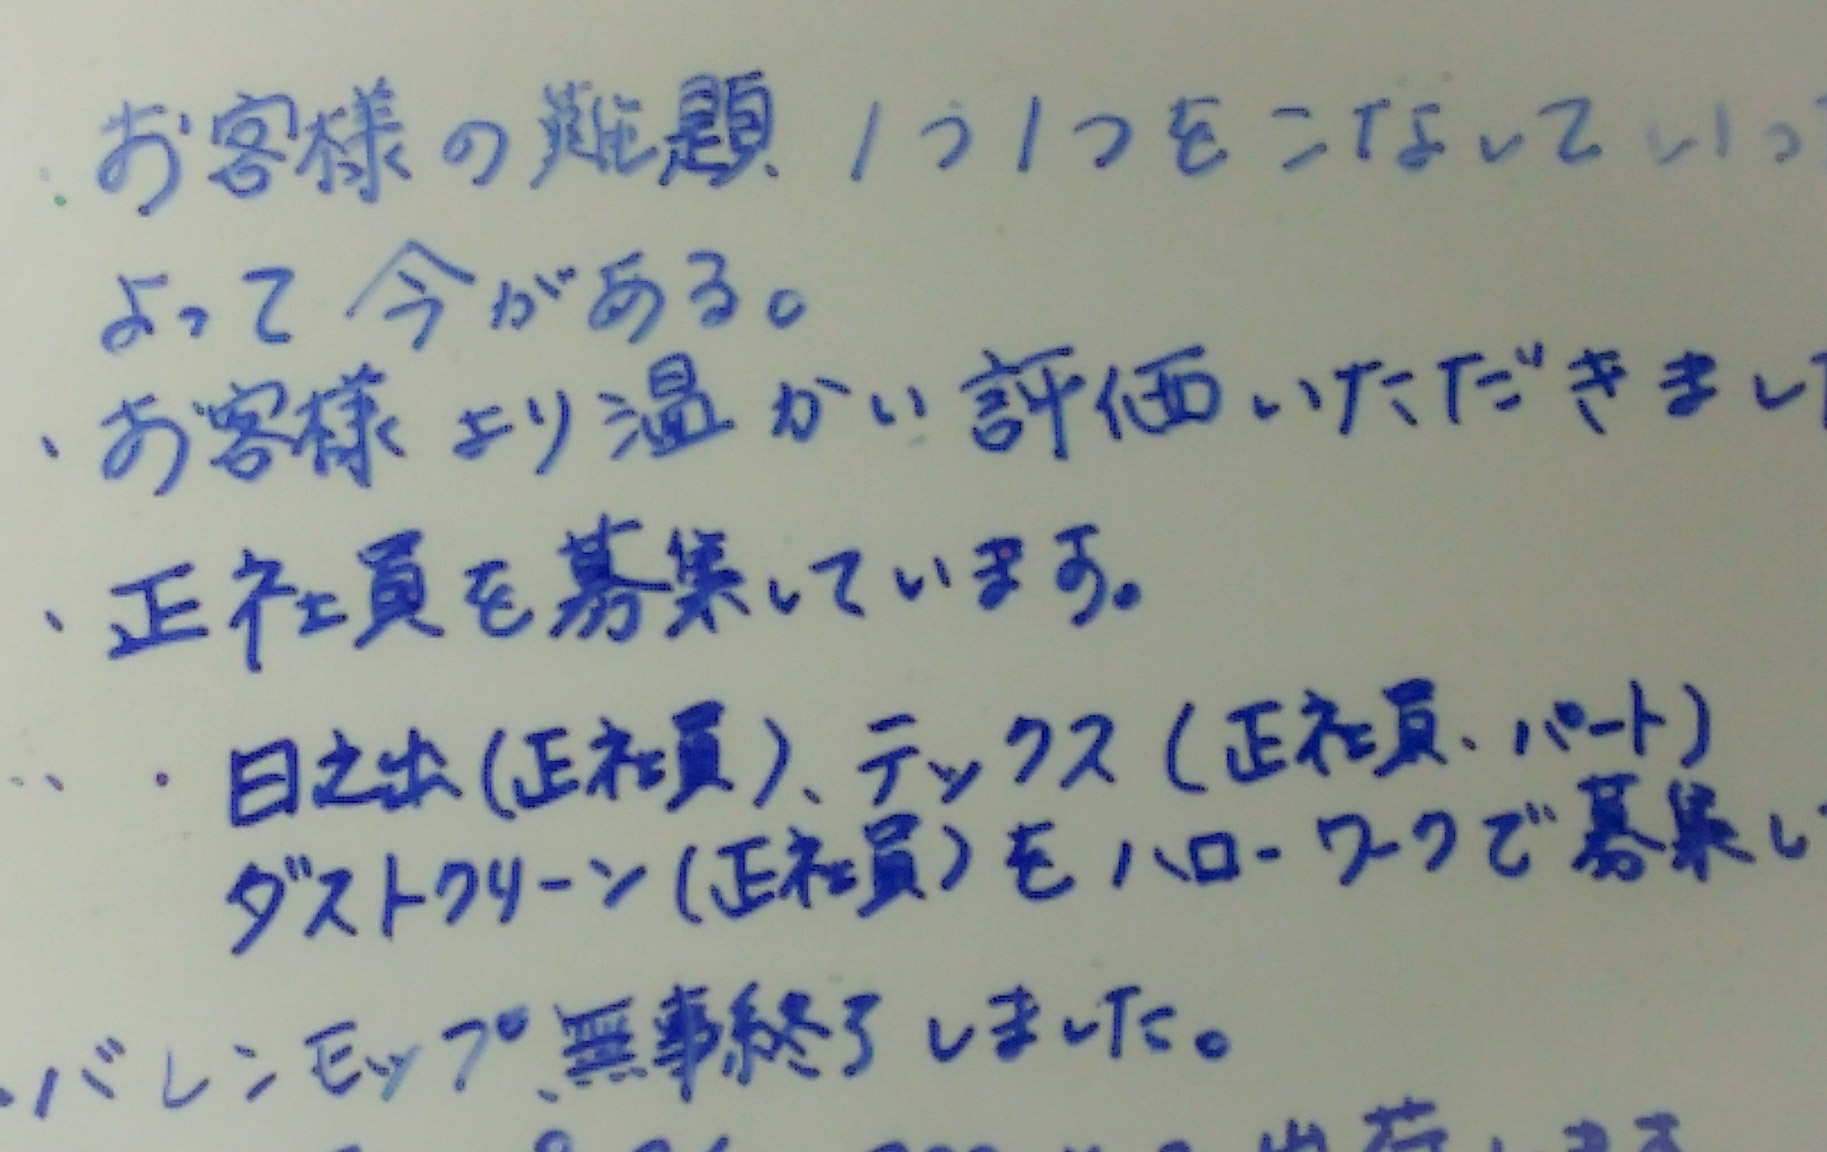 ・お客様の難題1つ1つをこなしていっ
よって今がある。
・お客様より温かい評価いただきまし
・正社員を募集しています。
・日之出(正社員)、テックス(正社員、パート)
ダストクリーン(正社員)をハローワークで募集し
・バレンモップ、無事終了しました。
出荷します